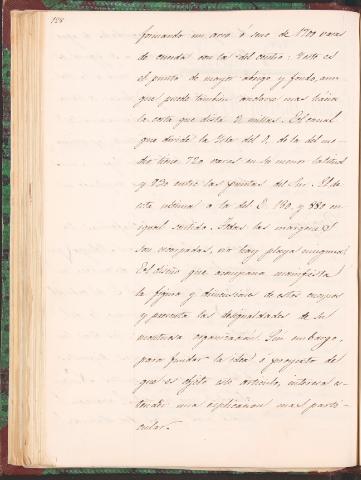 128
formando un arco ó seno de 1700 varas
de cuerda con la del centro: este es
el punto de mayor abrigo y fondo, aun
que puede tambien anclarse mas hácia
la costa que dista 2 millas. El canal
que divide la Isla del O. de la del me-
dio tiene 720 varas en su menor latitud
y 830 entre las puntas del Sur. El de
esta ultima a la del E. 180, y 880 en
igual sentido. Todas las margenes
son escarpadas, no hay playa ninguna.
El diseño que acompaña manifiesta
la figura y dimensiones de estos cuerpos
y presenta las desigualdades de su
montuosa organizacion. Sin embargo,
para fundar la idea ó proyecto del
que es objeto este articulo, interesa es-
tender una esplicacion mas parti-
cular.